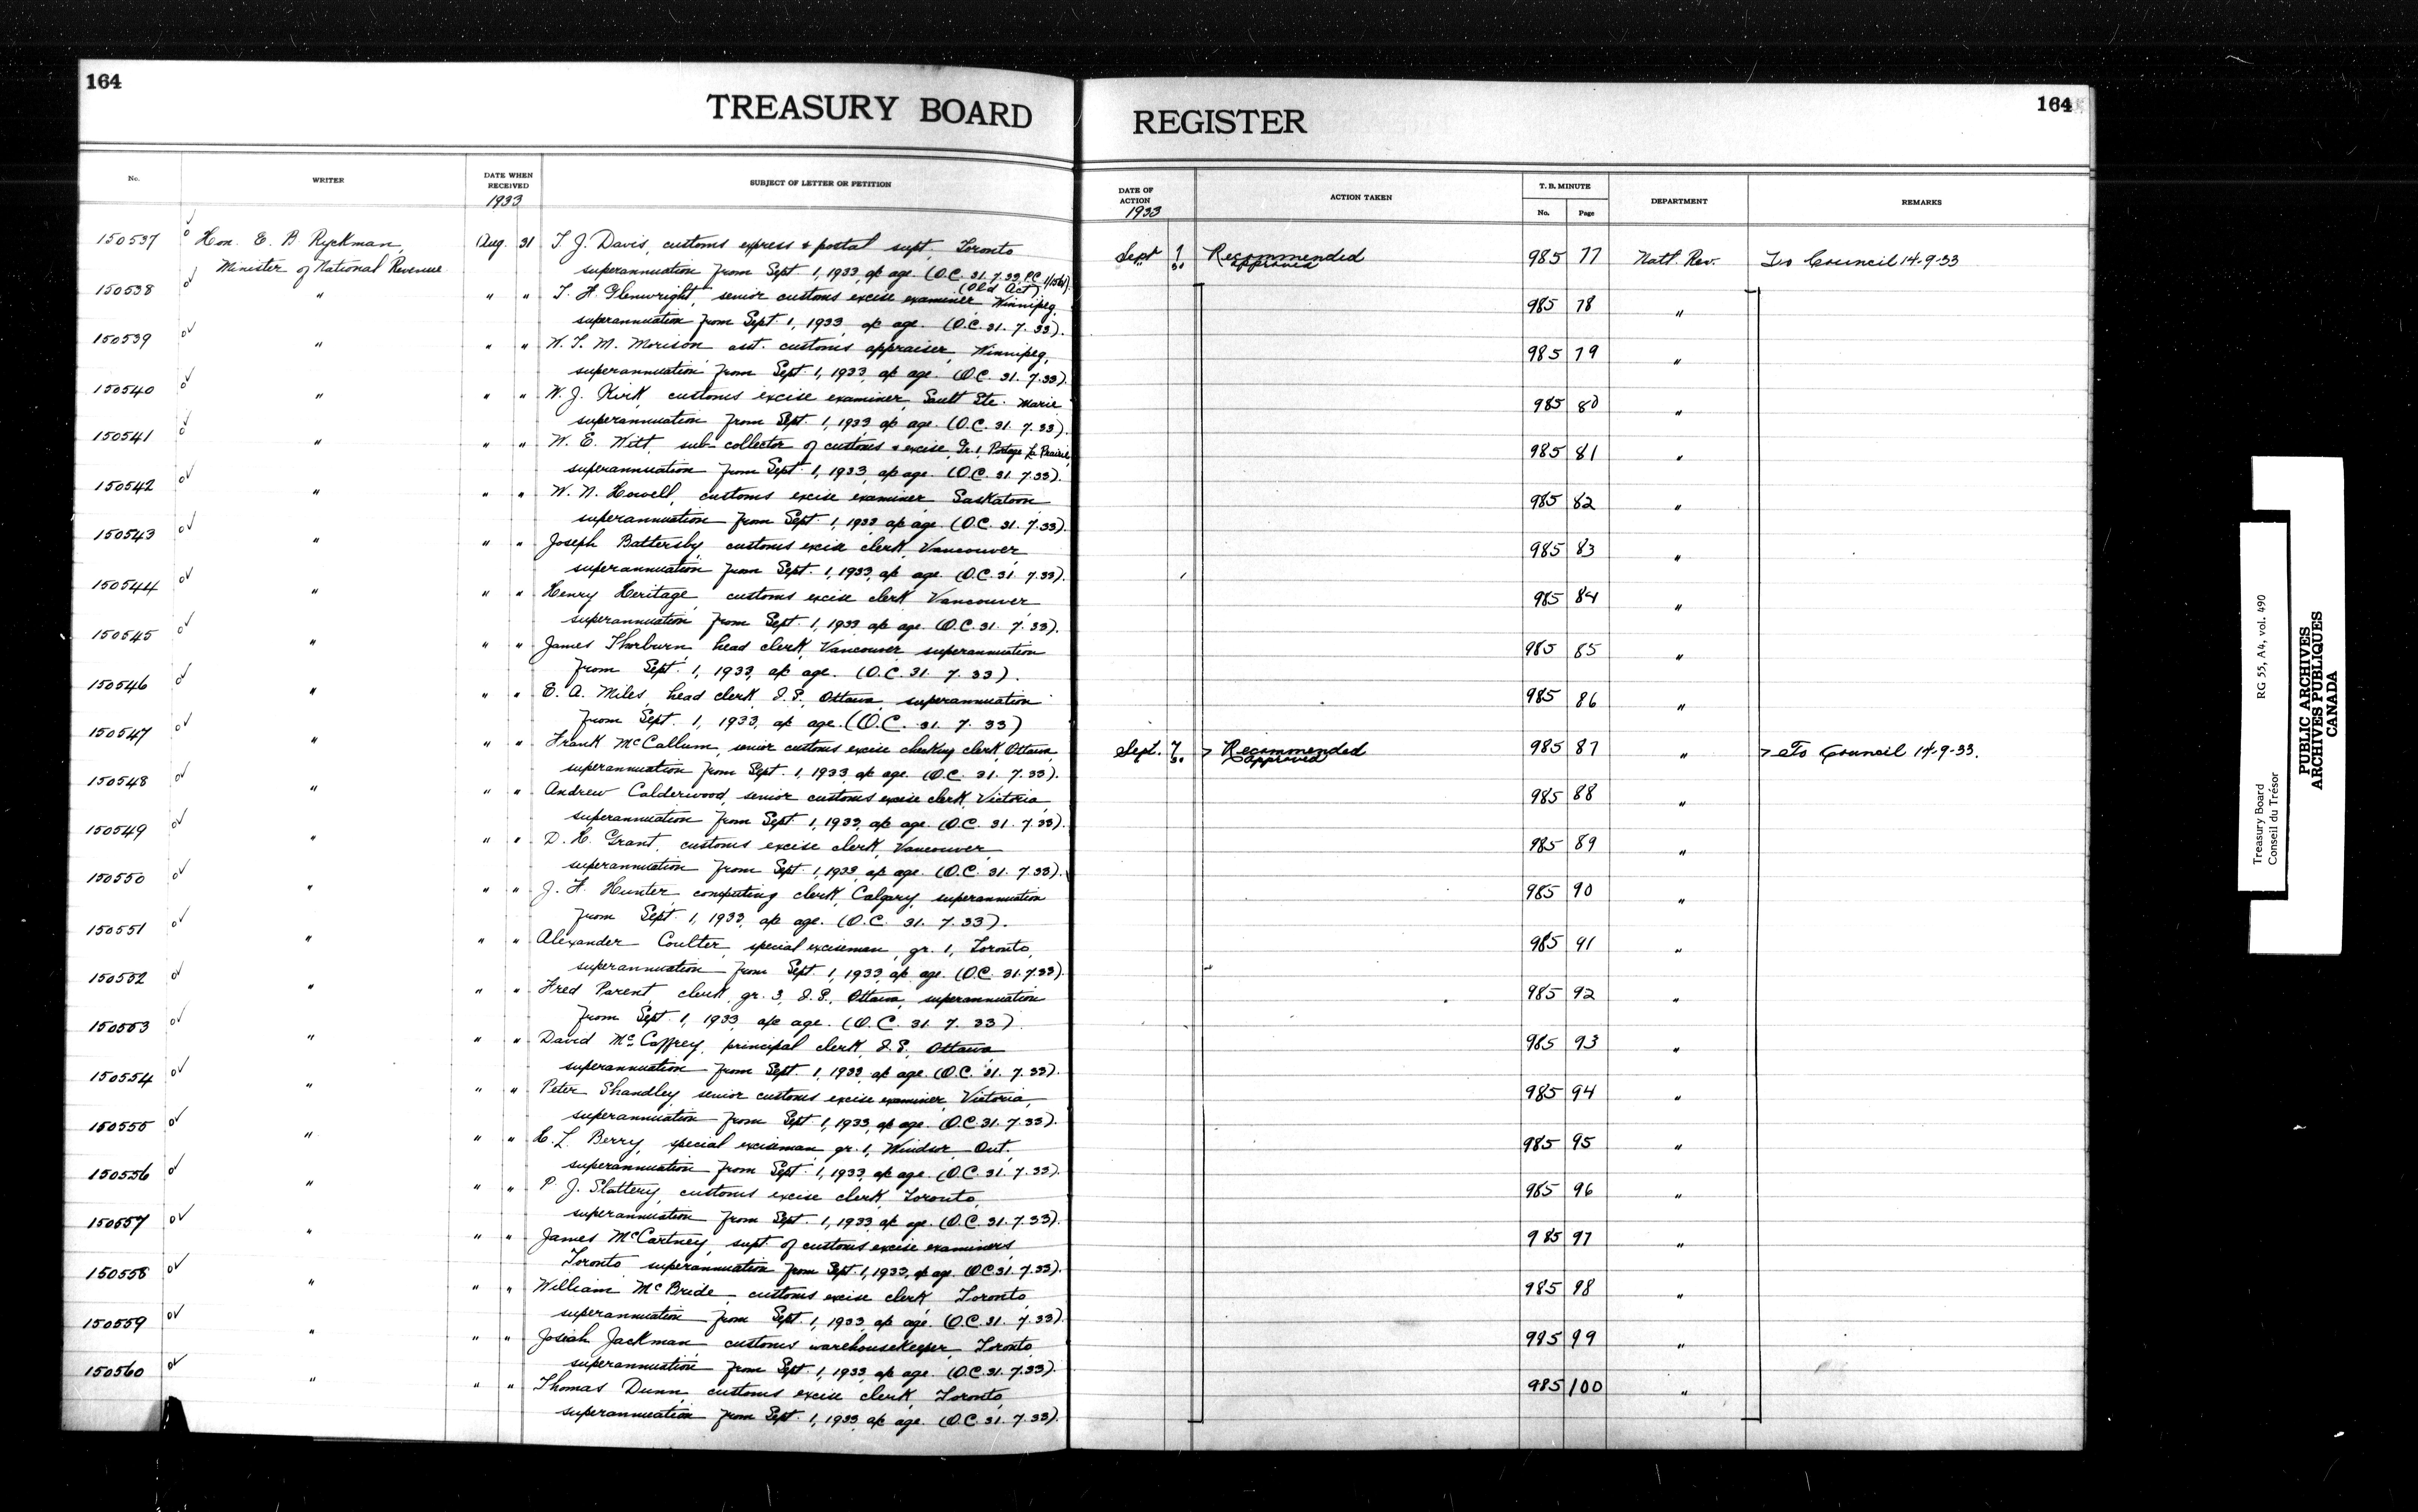 164
TREASURY BOARD
REGISTER
164
No.
WRITER
DATE WHEN RECEIVED
1933
SUBJECT OF LETTER OR PETITION
DATE OF ACTION
1933
ACTION TAKEN
T. B. MINUTE
No. Page
DEPARTMENT
REMARKS
150537 Hon. E. B Ryckman, Aug. 31 T. J. Davis, customs express & postal supt. Toronto Sept 1 Recommended 985 77 Natl. Rev. To Council 14-9-33
Minister of National Revenue superannuation from Sept. 1, 1933, a/c age. (O.C. 31. 7. 33, P.C. approved
(Old Act)
150538 " " " T. H. Glenwright, senior customs excise examiner Winnipeg, 985 78 "
superannuation from Sept. 1, 1933, a/c age. (O.C. 31. 7. 33).
150539 " " " W. T. M. Morison asst. customs appraiser, Winnipeg, 985 79 "
superannuation from Sept. 1, 1933, a/c age. (O.C. 31. 7. 33).
150540 " " " W. J. Kirk customs excise examiner, Sault Ste. Marie 985 80 "
superannuation from Sept. 1, 1933 a/c age. (O.C. 31. 7. 33).
150541 " " " W. E. Witt, sub-collector of customs & excise, Gr. 1, Portage La Prairie, 985 81 "
superannuation from Sept. 1, 1933, a/c age. (O.C. 31. 7. 33).
150542 " " " W. N. Howell, customs excise examiner Saskatoon 985 82 "
superannuation from Sept. 1, 1933 a/c age. (O.C. 31. 7. 33).
150543 " " " Joseph Battersby, customs excise clerk, Vancouver 985 83 "
superannuation from Sept. 1, 1933, a/c age. (O.C. 31. 7. 33).
150544 " " " Henry Heritage, customs excise clerk Vancouver, 985 84 "
superannuation from Sept. 1, 1933, a/c age. (O.C. 31. 7. 33).
150545 " " " James Thorburn, head clerk, Vancouver superannuation 985 85 "
from Sept. 1, 1933, a/c age. (O.C. 31. 7. 33).
150546 " " " E. A. Miles, head clerk, I.S., Ottawa, superannuation 985 86 "
from Sept. 1, 1933, a/c age. (O.C. 31. 7. 33)
150547 " " " Frank McCallum, senior customs excise checking clerk, Ottawa, Sept. 7 > Recommended 985 87 " > To Council 14-9-33.
superannuation from Sept. 1, 1933, a/c age. (O.C. 31. 7. 33). approved
150548 " " " Andrew Calderwood, senior customs excise clerk, Victoria, 985 88 "
superannuation from Sept. 1, 1933, a/c age. (O.C. 31. 7. 33).
150549 " " " D. H. Grant, customs excise clerk, Vancouver, 985 89 "
superannuation from Sept. 1, 1933, a/c age. (O.C. 31. 7. 33).
150550 " " " J. F. Hunter, computing clerk, Calgary, superannuation 985 90 "
from Sept. 1, 1933, a/c age. (O.C. 31. 7. 33).
150551 " " " Alexander Coulter, special exciseman, gr. 1, Toronto, 985 91 "
superannuation from Sept. 1, 1933, a/c age. (O.C. 31. 7. 33).
150552 " " " Fred Parent, clerk, gr. 3, I.S., Ottawa, superannuation 985 92 "
from Sept. 1, 1933, a/c age. (O.C. 31. 7. 33).
150553 " " " David McCaffrey, principal clerk, I.S., Ottawa 985 93 "
superannuation from Sept. 1, 1933, a/c age. (O.C. 31. 7. 33).
150554 " " " Peter Shandley, senior customs excise examiner, Victoria, 985 94 "
superannuation from Sept. 1, 1933, a/c age. (O.C. 31. 7. 33).
150555 " " " H. L. Berry, special exciseman, gr. 1, Windsor Ont., 985 95 "
superannuation from Sept. 1, 1933, a/c age. (O.C. 31. 7. 33).
150556 " " " P. J. Slattery, customs excise clerk, Toronto, 985 96 "
superannuation from Sept. 1, 1933, a/c age. (O.C. 31. 7. 33).
150557 " " " James McCartney, supt. of customs excise examiners, 985 97 "
Toronto superannuation from Sept. 1, 1933, a/c age. (O.C. 31. 7. 33).
150558 " " " William McBride, customs excise clerk Toronto, 985 98 "
superannuation from Sept. 1, 1933, a/c age. (O.C. 31. 7. 33).
150559 " " " Josiah Jackman customs warehousekeeper, Toronto, 985 99 "
superannuation from Sept. 1, 1933, a/c age. (O.C. 31. 7. 33).
150560 " " " Thomas Dunn, customs excise clerk, Toronto, 985 100 "
superannuation from Sept. 1, 1933, a/c age. (O.C. 31. 7. 33).
Treasury Board RG 55, A4, vol. 490
Conseil du Trésor
PUBLIC ARCHIVES
ARCHIVES PUBLIQUES
CANADA